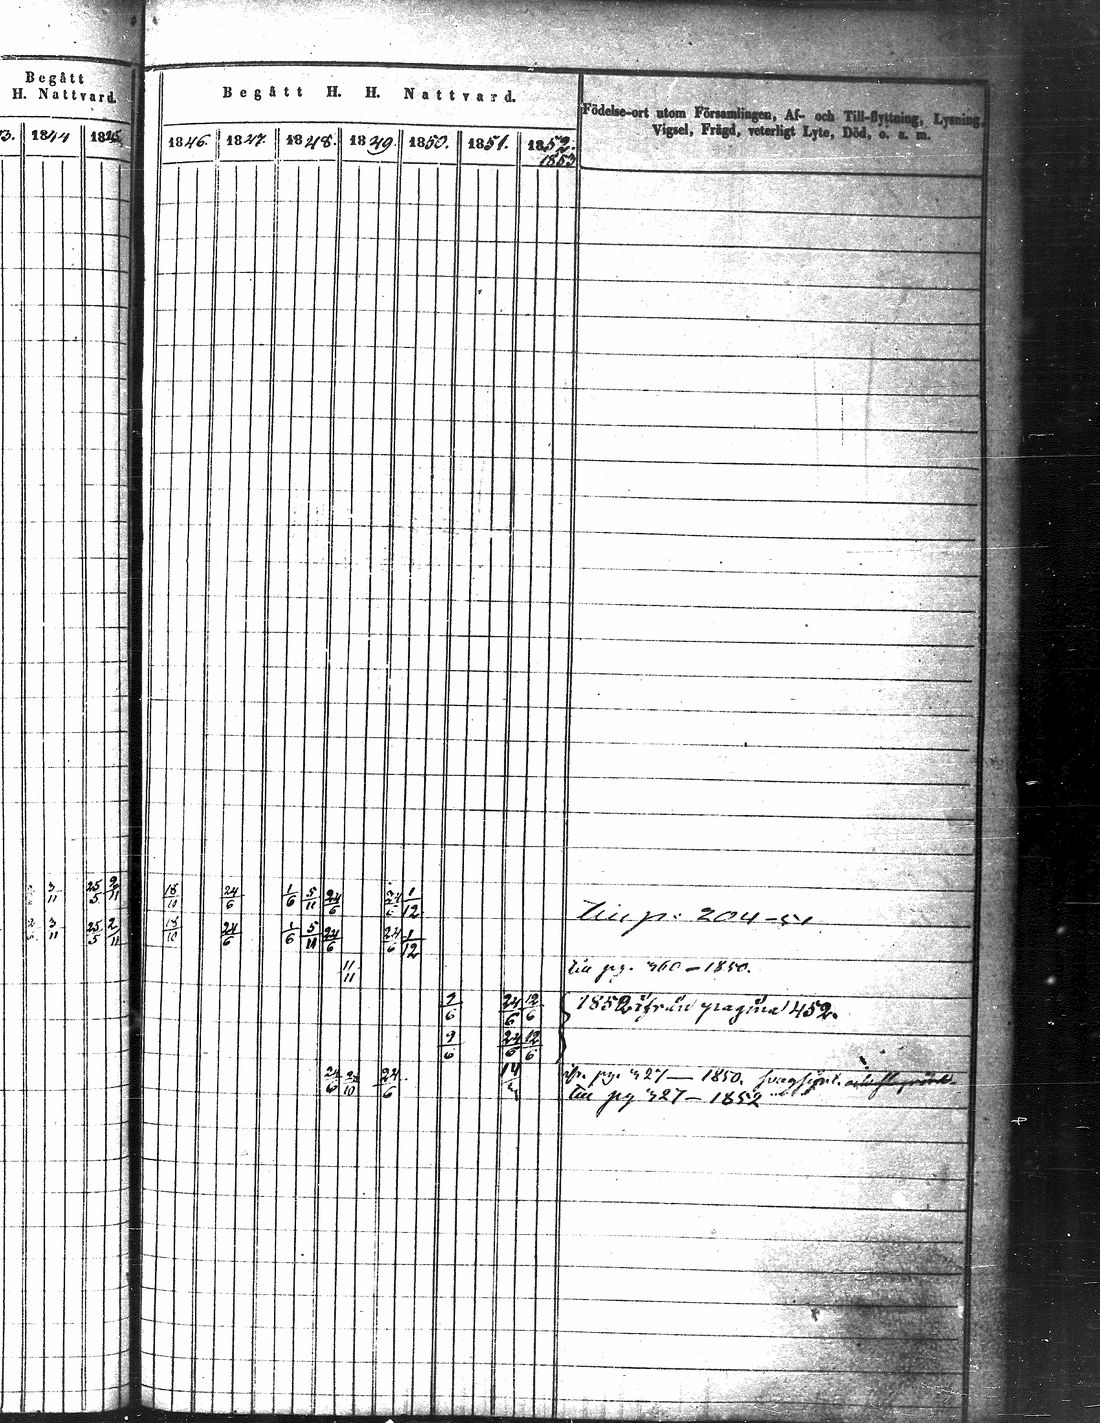 Begått
H. Nattvard.
Begått H. H. Nattvard.
Födelse-ort utom Församlingen, Af- och Till-flyttning, Lysning,
Vigsel, Frägd, veterligt Lyte, Död, o. a. m.
3. 1844 1845. 1846. 1847. 1848. 1849. 1850. 1851. 1852.
1853
3/11 25/5 2/11 18/10 24/6 1/6 5/11 24/6 24/6 1/12
till p. 204-51
3/11 25/5 2/11 18/10 24/6 1/6 5/11 24/6 24/6 1/12
11/11 till pg. 360 – 1850.
9/6 24/6 12/6 1852 ifrån pagina 452.
9/6 24/6 12/6
24/6 24/6 14 fr. pg. 327 — 1850.
till pg 327 – 1852